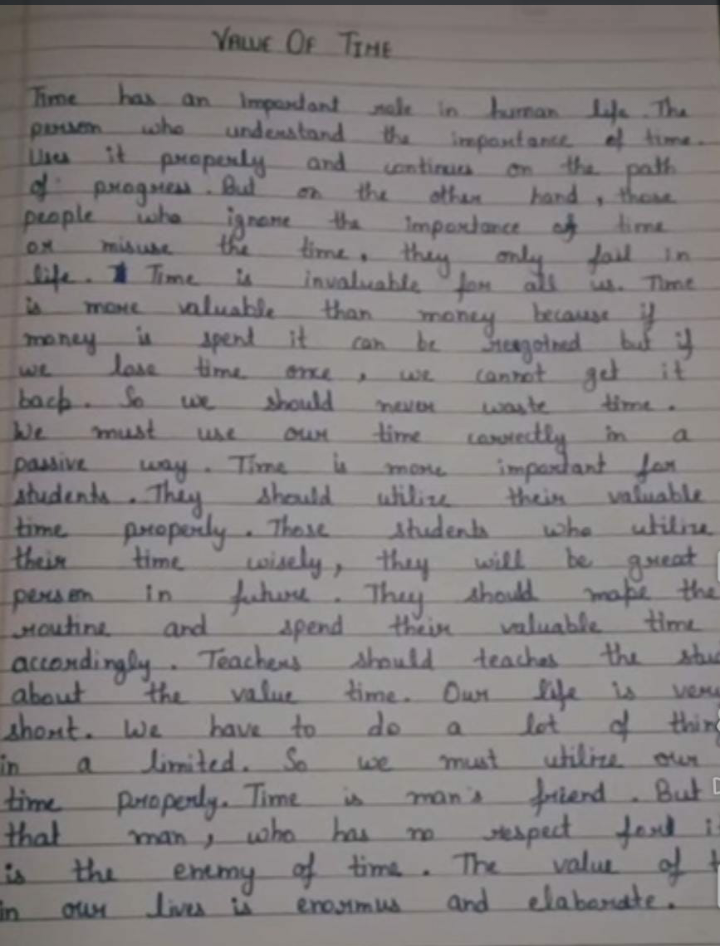 VALUE OF TIME
Time has an important role in human life. The
person who understand the importance of time.
Uses it properly and continues on the path
of progress. But on the other hand, those
people who ignore the importance of time
or misuse the time, they only fail in
life. Time is invaluable for all us. Time
is more valuable than money because if
money is spent it can be reagoined but if
we lose time once, we cannot get it
back. So we should never waste time.
We must use our time correctly in a
passive way. Time is more important for
students. They should utilize their valuable
time properly. Those students who utilize
their time wisely, they will be great
person in future. They should make the
routine and spend their valuable time
accordingly. Teachers should teaches the stu
about the value time. Our life is very
short. We have to do a lot of thin
in a limited. So we must utilize our
time properly. Time is man's friend. But
that man, who has no respect for i
is the enemy of time. The value of t
in our lives is enormus and elaborate.